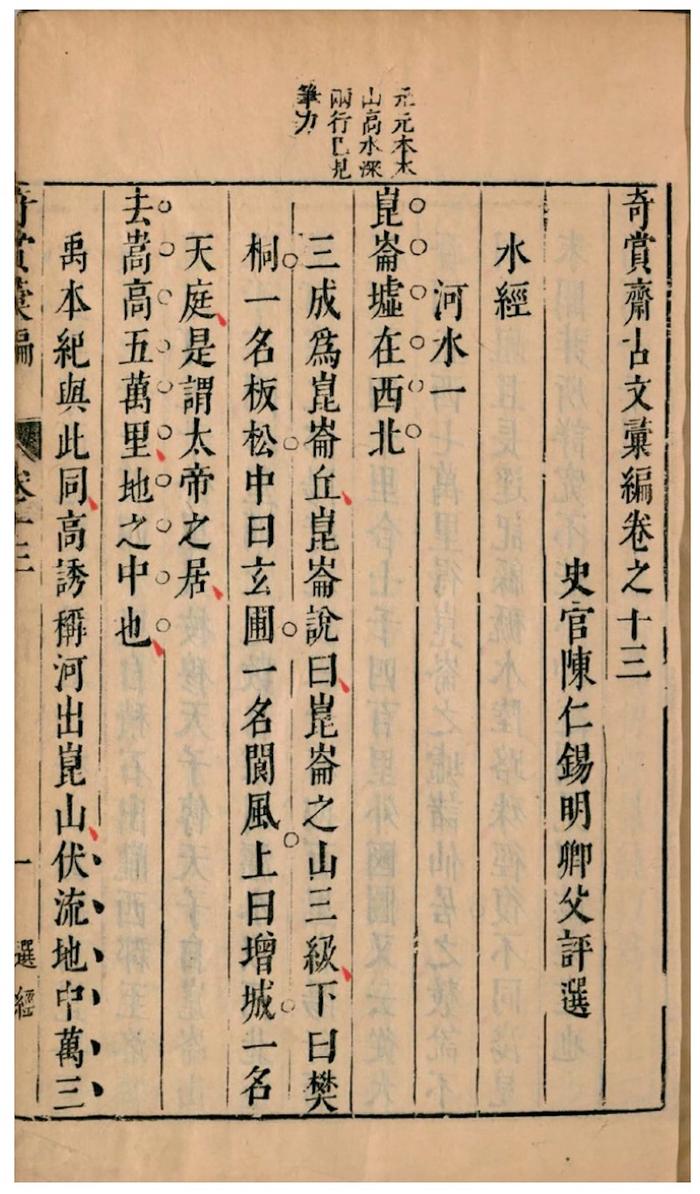 元元本本
山高水深
兩行已見
筆力
奇賞齋古文彙編卷之十三
史官陳仁錫明卿父評選
水經
河水一
崑崙墟在西北
三成爲崑崙丘崑崙說曰崑崙之山三級下曰樊
桐一名板松中曰玄圃一名閬風上曰增城一名
天庭是謂太帝之居
去嵩高五萬里地之中也
禹本紀與此同高誘稱河出崑山伏流地中萬三
奇賞彙編
卷十三
一
選經